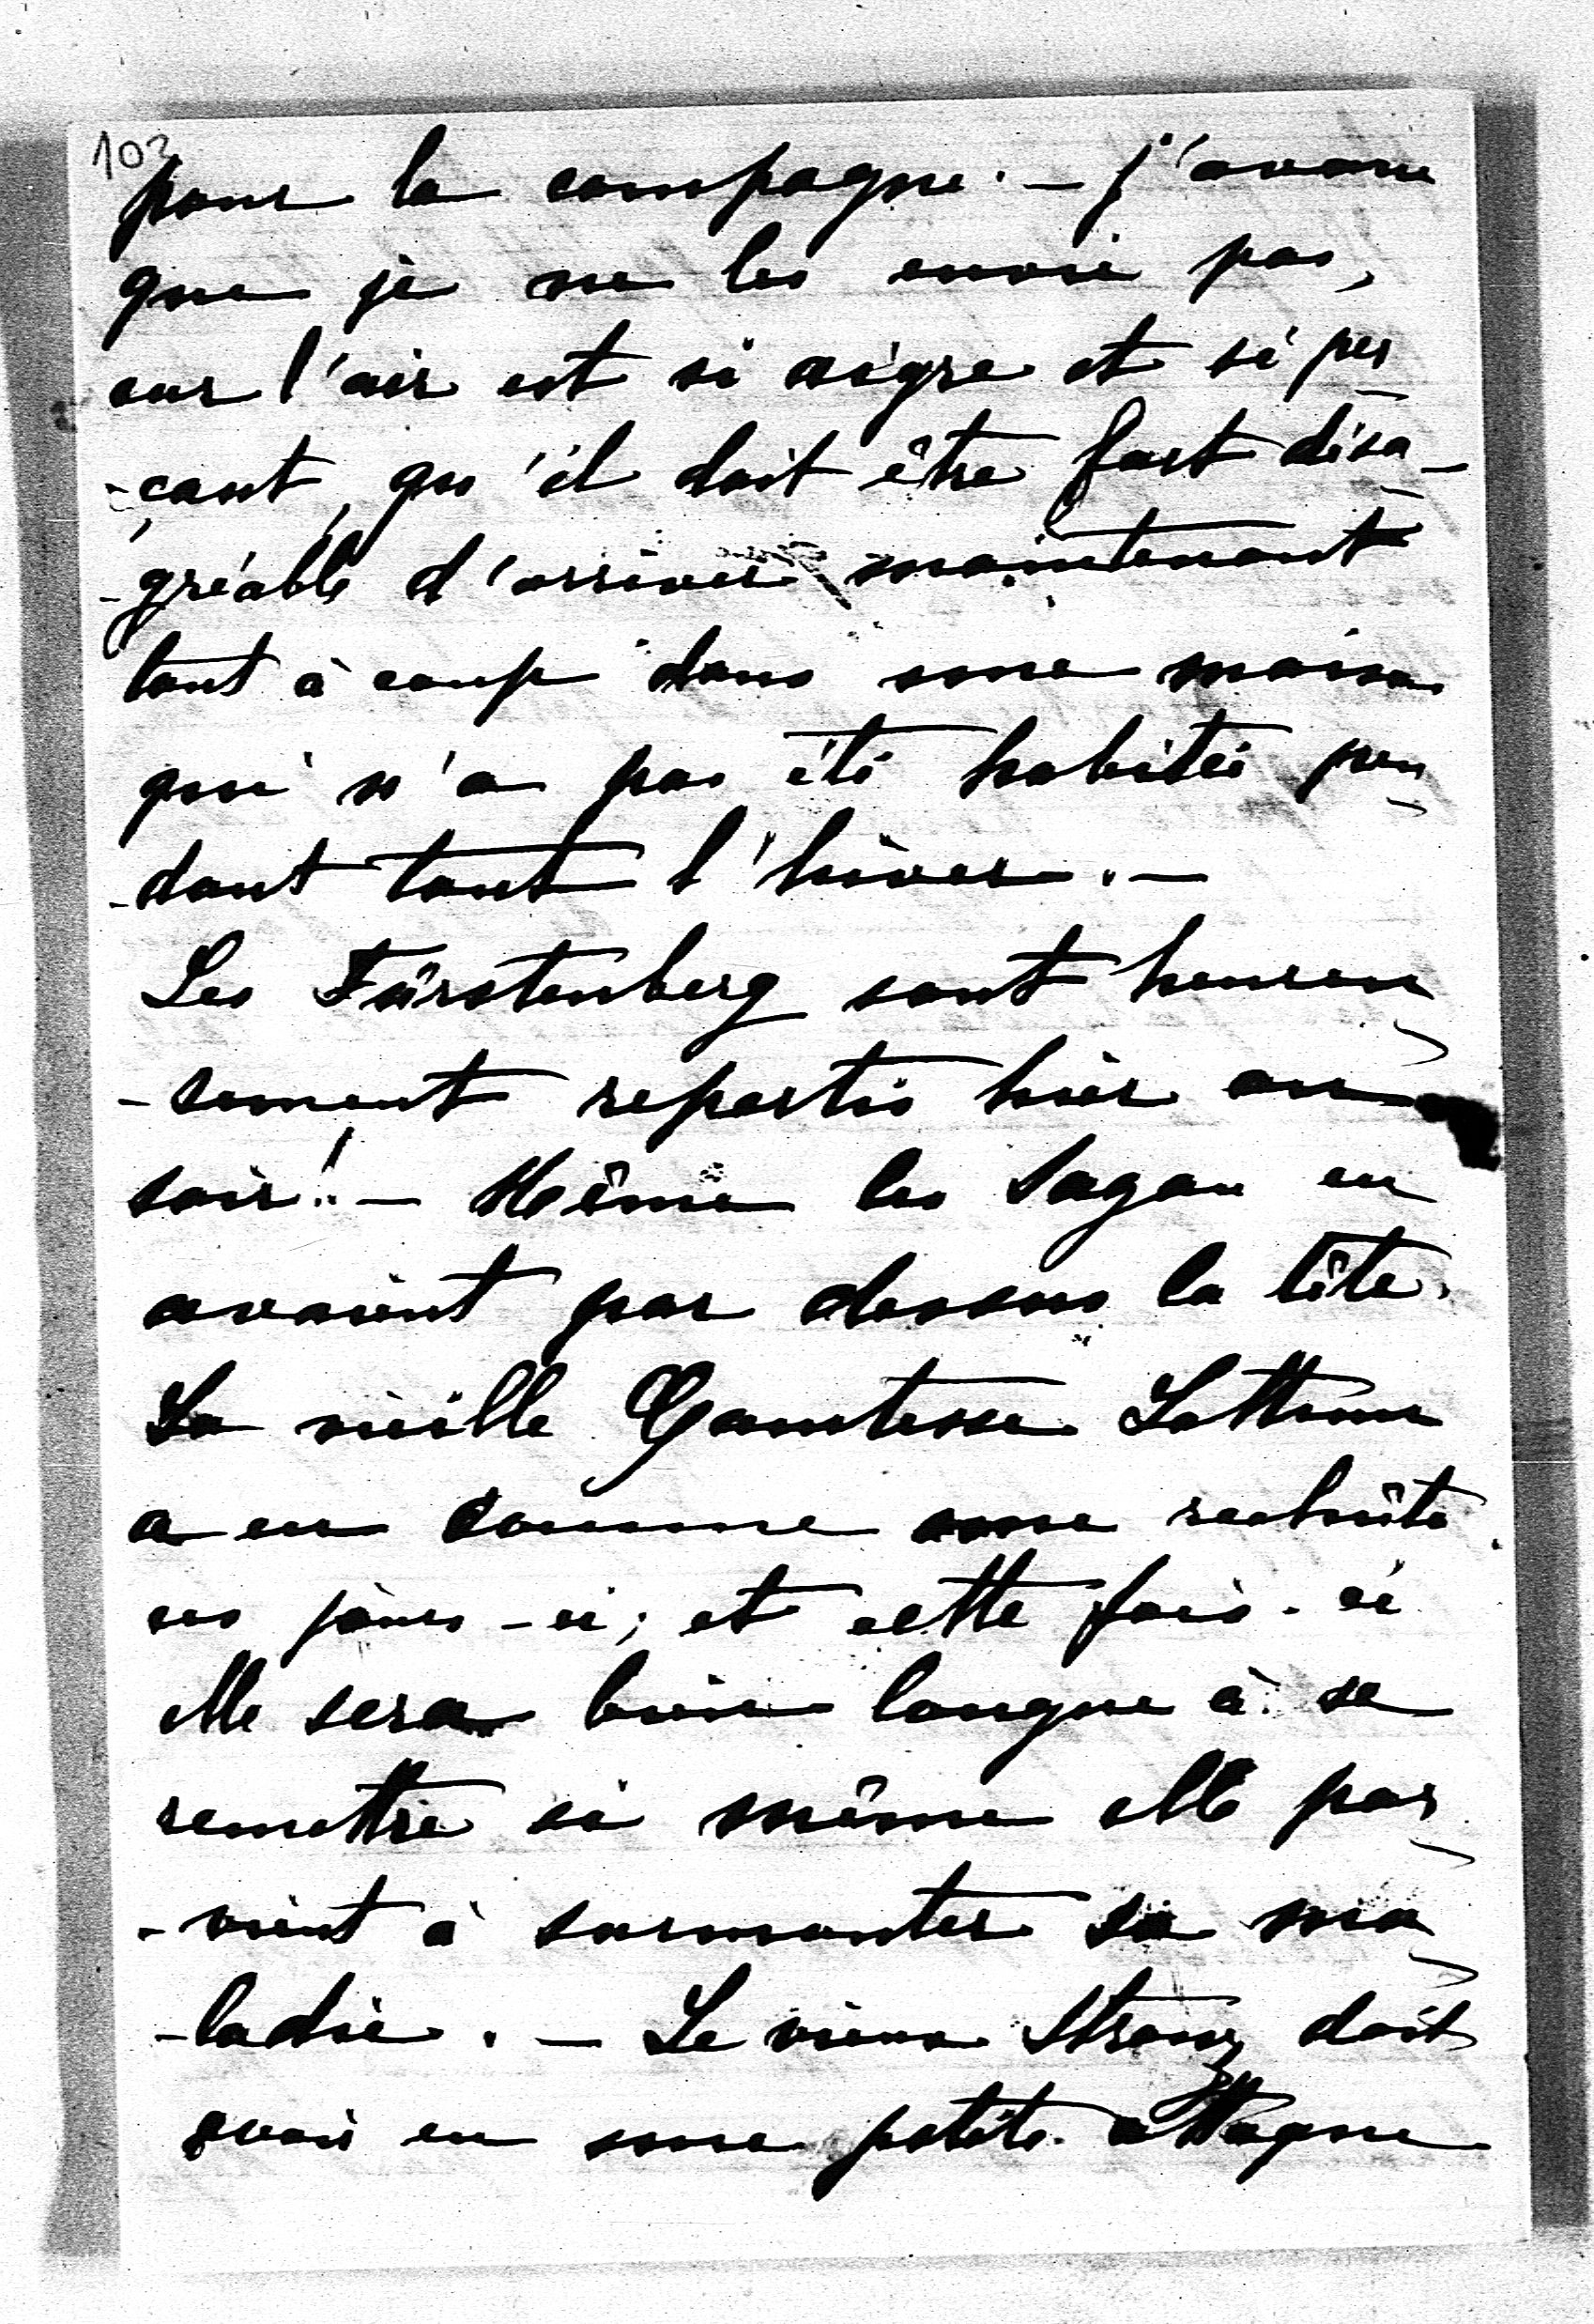 103
pour la campagne. — j'avoue
que je ne les envie pas,
car l'air est si aigre et si per
-çant, qu'il doit être fort désa-
-gréable d'arriver maintenant
tout à coup dans une maison
qui n'a pas été habitée pen
-dant tout l'hiver. —
Les Fürstenberg sont heureu
-sement repartis hier au
soir! — Même les Sagan en
avaient par dessus la tête.
La vieille Comtesse Lottum
a eu comme une rechûte
ces jours-ci; et cette fois-ci
elle sera bien longue à se
remettre si même elle par
-vient à surmonter sa ma
-ladie. — Le vieux Stranz doit
avoir eu une petite attaque